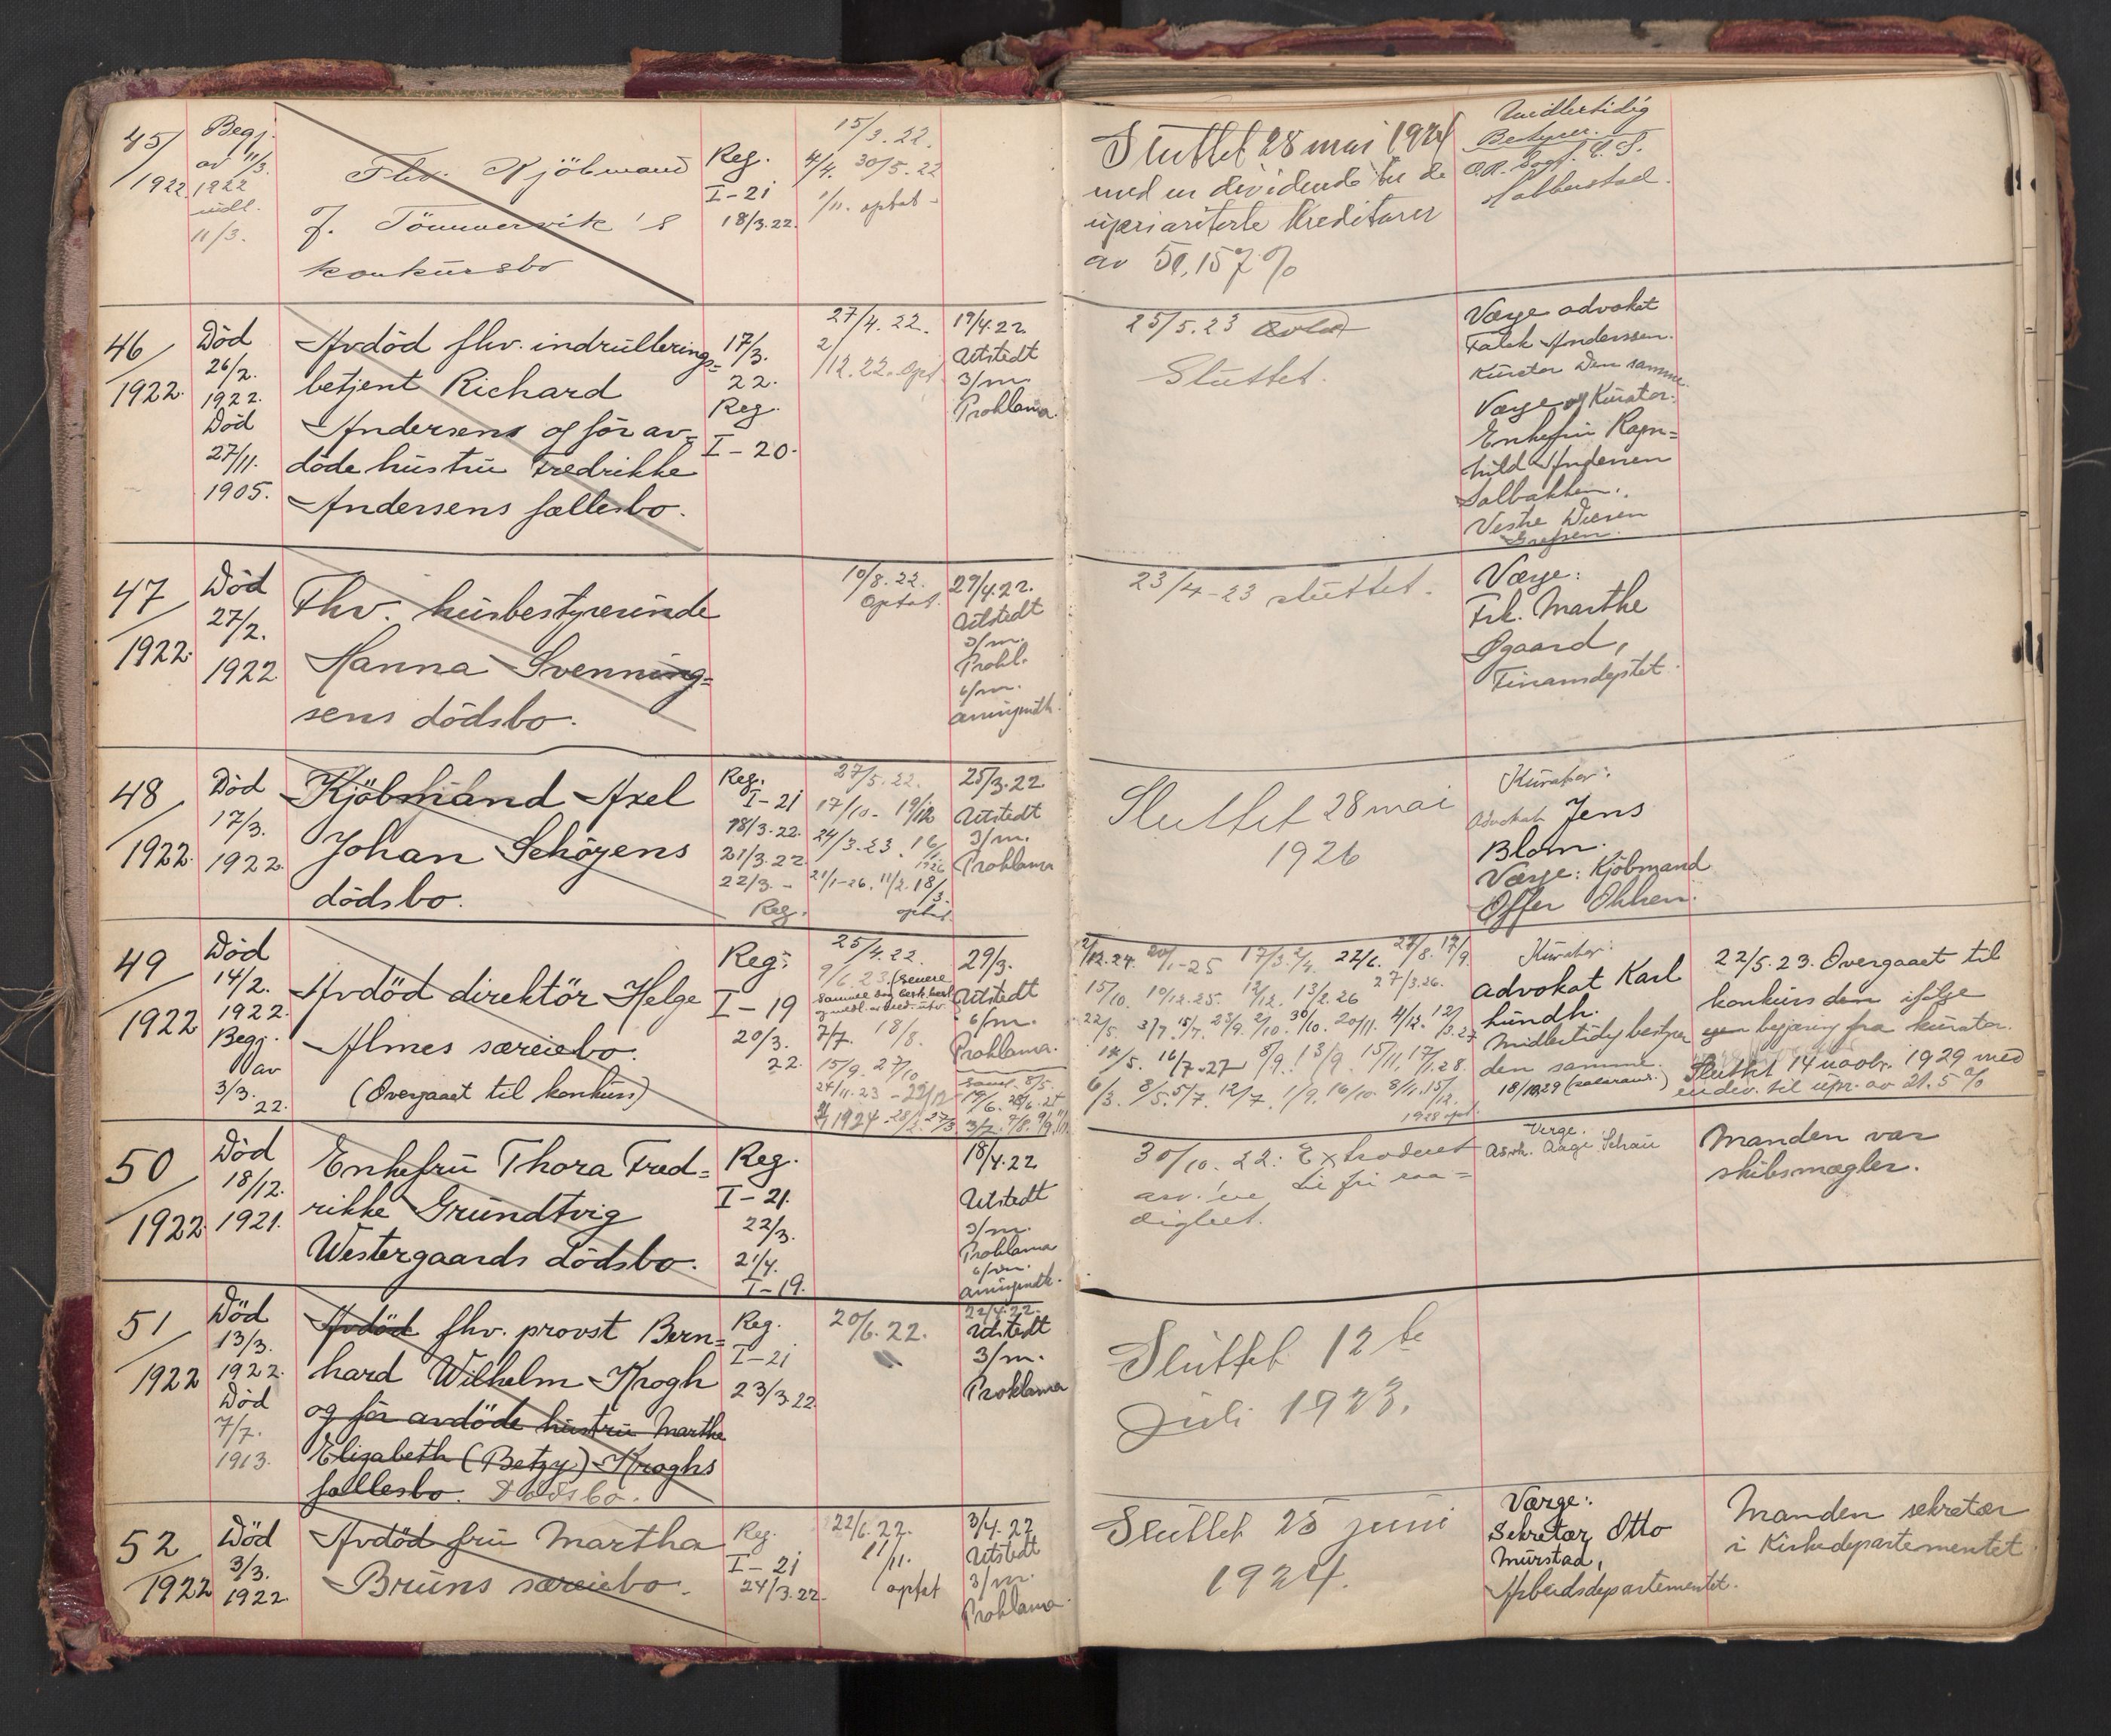 45/1922
Begj.
av 11/3.
1922
indl.
11/3.
Fhv. Kjöbmand
J. Tömmervik's
konkursbo
Reg.
I-21
18/3.22.
15/3.22.
4/4. 30/5.22
1/11. optat
Sluttet 28 mai 1924
med en dividende til de
uprioriterte kreditorer
av
Midlertidig
Bestyrer.
O.R. Sagf.
46/1922.
Död
26/2.
1922.
Död
27/11.
1905.
Avdöd fhv. indrullerings=
betjent Richard
Andersens og för av=
döde hustru Fredrikke
Andersens fællesbo.
17/3.
22.
Reg.
I-20.
27/4.22.
2/12.22. Opt
19/4.22
Utstedt
3/m.
Proklama.
25/5.23
Sluttet.
Værge advokat
Falck Anderssen.
Kurator Den samme.
Værge og Kurator:
Enkefru Ragn=
hild Andersen
Solbakken.
Vestre
Grefsen.
47/1922.
Död
27/2.
1922
Fhv. husbestyrerinde
Hanna Svenning=
sens dödsbo.
10/8.22.
Optat.
29/4.22.
Utstedt
3/m.
Prokl.
6/m.
arvingindk.
23/4-23 sluttet.
Værge:
Frk. Marthe
Øgaard,
Finansdeptet.
48/1922.
Död
17/3.
1922.
Kjöbmand Axel
Johan Schöyens
dödsbo.
Reg.
I-21
18/3.22.
21/3.22
22/3. -
Reg.
27/5.22.
17/10- 19/12
24/3.23. 16/1
1926
21/1-26. 11/2. 18/3.
optat
25/3.22
Utstedt
3/m.
Proklama
Sluttet 28 mai
1926
Kurator:
Advokat Jens
Blom.
Værge: Kjöbmand
Offer Okken.
49/1922
Död
14/2.
1922.
Begj.
av
3/3.
22.
Avdöd direktör Helge
Almes særeiebo.
(Overgaaet til konkurs)
Reg:
I-19
20/3.
22.
25/4.22.
9/6.23. (senere
samme dag
7/7. 18/8.
15/9. 27/10
24/11.23 - 22/12
29/3.
Utstedt
6/m.
Proklama.
2/12.24. 20/1-25 17/3. 2/4. 22/6. 27/8. 17/9
15/10. 19/12.25. 12/12. 13/2.26 27/3.26.
22/5. 3/7. 15/7. 23/9. 2/10. 30/10. 20/11. 4/12. 12/3.27
16/7-27 8/9. 13/9. 15/11. 17/1.28.
6/3. 8/5. 5/7. 12/7. 1/9. 16/10. 8/11. 15/12.
1928 opt.
Kurator:
advokat Karl
Lundh.
Midlertidig bestyrer
den samme.
22/5.23. Overgaaet til
konkurs den ifölge
begjæring fra kurator.
Sluttet 14 novbr. 1929 med
en div. til upr. av 21.5%
50/1922.
Död
18/12.
1921.
Enkefru Thora Fred=
rikke Grundtvig
Westergaards dödsbo.
Reg.
I-21.
22/3.
21/4.
I-19.
18/4.22
Utstedt
3/m.
Proklama
6/m.
arvingindk.
30/10.22: Extraderet
arv.'ne til fri raa=
dighet.
Verge.
Advk. Aage Schou
Manden var
skibsmægler.
51/1922
Död
13/3.
1922.
Död
7/7.
1913.
Avdöd fhv. provst Bern=
hard Wilhelm Krogh
og för avdöde hustru Marthe
Elizabeth (Betzy) Kroghs
fællesbo. Dödsbo.
Reg.
I-21
23/3.22
20/6.22.
22/4.22.
Utstedt
3/m.
Proklama
Sluttet 12te
juli 1923.
52/1922
Död
3/3.
1922.
Avdöd fru Martha
Bruns særeiebo.
Reg.
I-21
24/3.22.
22/6.22.
11/11.
optat
3/4.22
Utstedt
3/m.
Proklama.
Sluttet 25 juni
1924.
Værge:
Sekretær Otto
Murstad,
Arbeidsdepartementet.
Manden sekretær
i Kirkedepartementet